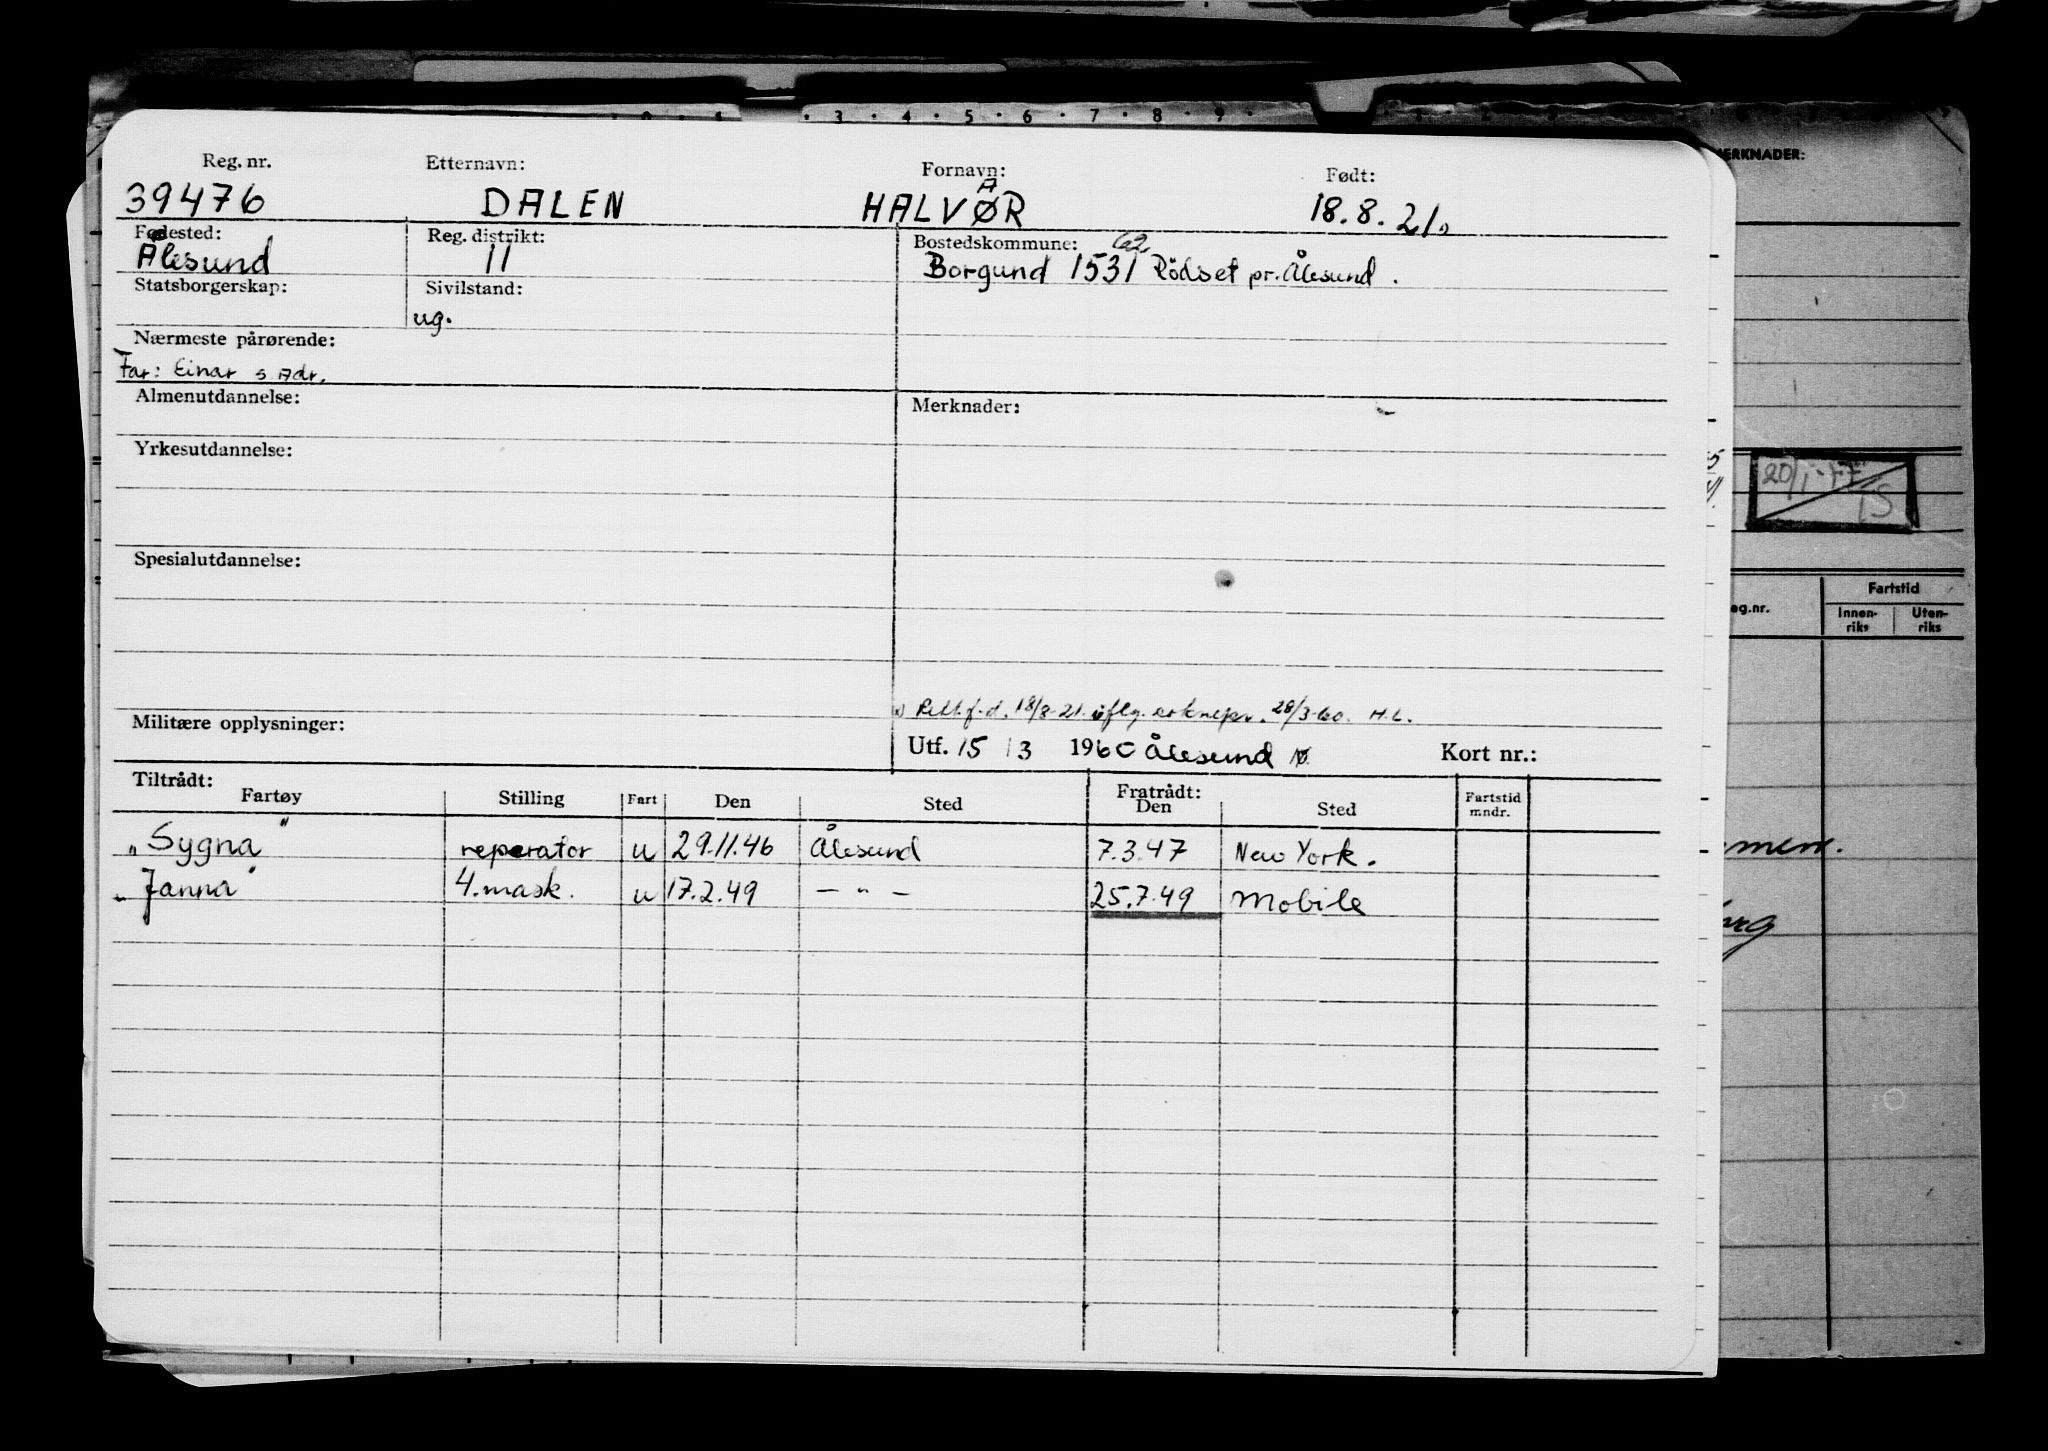 Reg. nr. Etternavn: Fornavn: Født:
39476 DALEN HALVØR A 18.8.21.
Fødested: Reg. distrikt: Bostedskommune:
Ålesund 11 Borgund 1531 62 Rödset pr. Ålesund.
Statsborgerskap: Sivilstand:
ug.
Nærmeste pårørende:
Far: Einar s. Adr.
Almenutdannelse: Merknader:
Yrkesutdannelse:
Spesialutdannelse:
f.d. 18/8-21. 28/3-60. H.L.
Militære opplysninger: Utf. 15/3 1960 Ålesund Kort nr.:
Tiltrådt: Fratrådt:
Fartøy Stilling Fart Den Sted Den Sted Fartstid mndr.
„Sygna" reperatør u 29.11.46 Ålesund 7.3.47 New York.
„Janna" 4. mask. u 17.2.49 — " — 25.7.49 Mobile
3 4 5 6 7 8 9
MERKNADER:
20/1-77
TS
eg.nr. Fartstid
Innen-riks Uten-riks